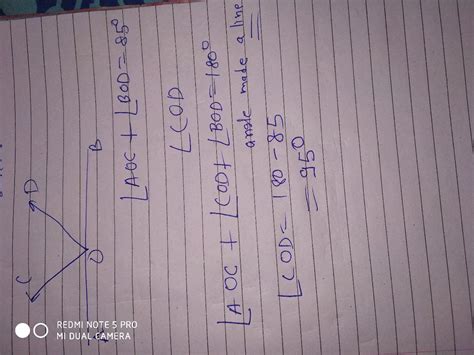 C
D
O
B
∠AOC + ∠BOD = 85°
∠COD
∠AOC + ∠COD + ∠BOD = 180°
angle made a line
∠COD = 180 - 85
= 95°
REDMI NOTE 5 PRO
MI DUAL CAMERA